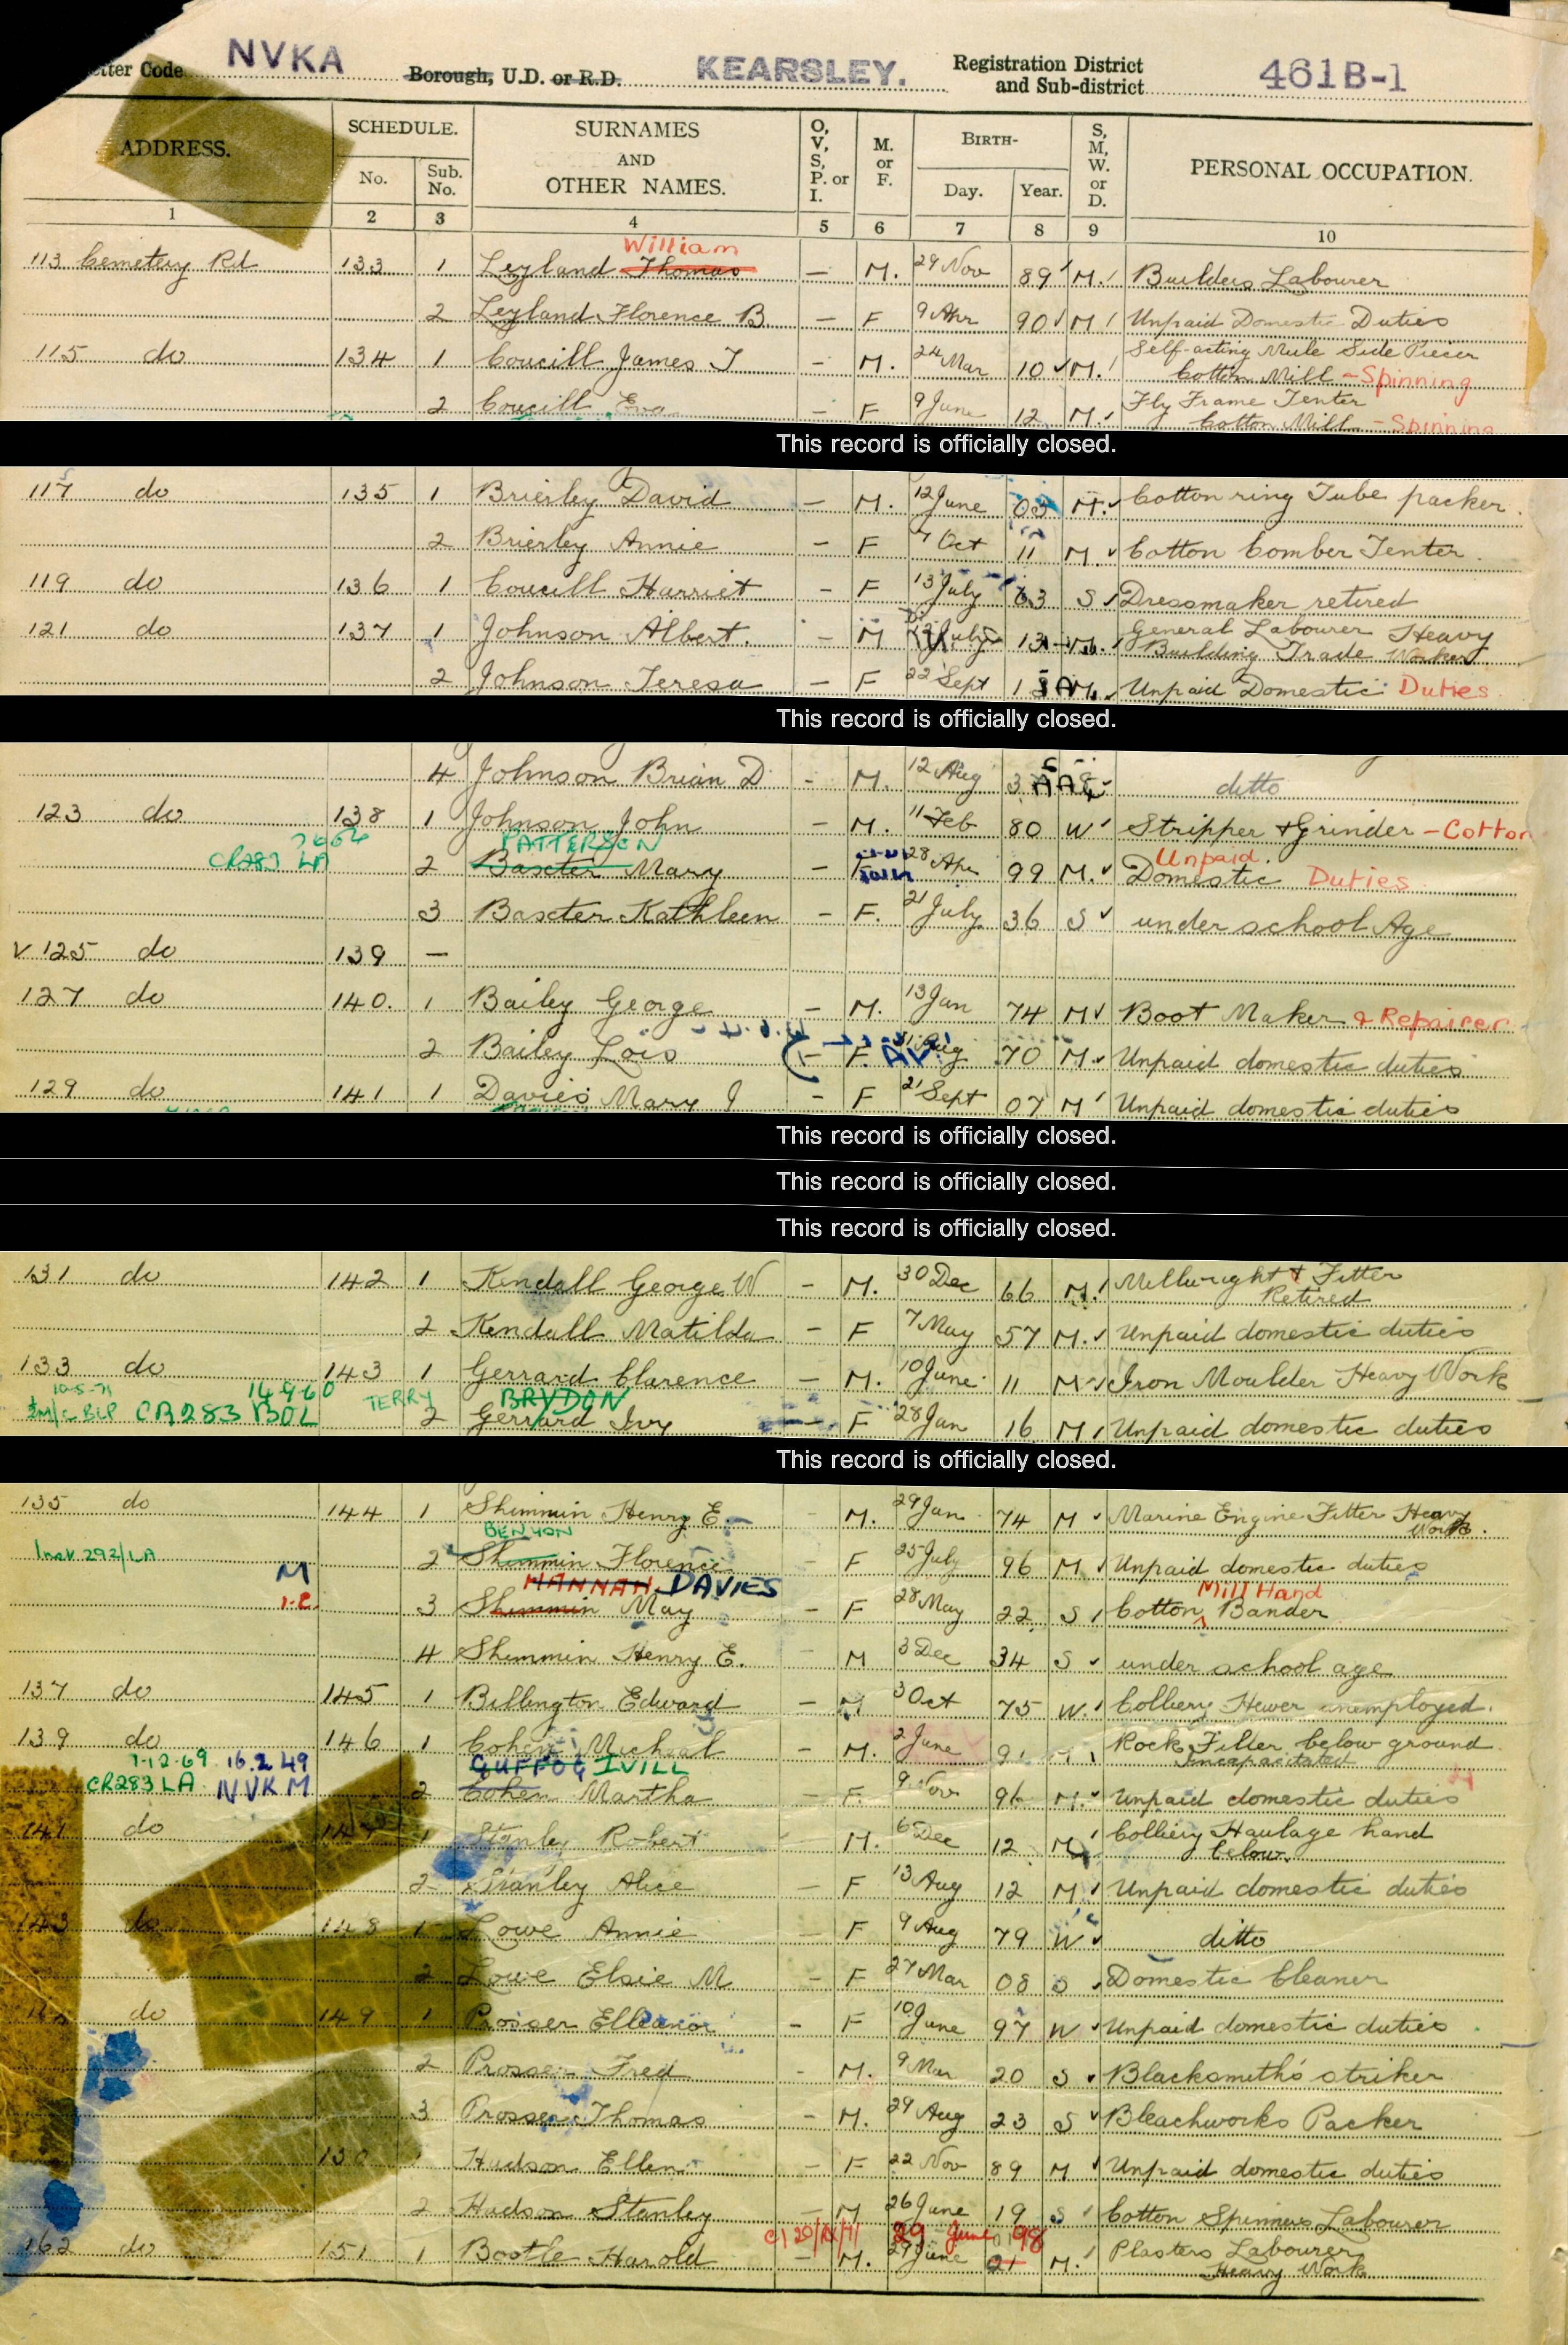 Letter Code NVKA Borough, U.D. or R.D. KEARSLEY. Registration District and Sub-district 461B-1
ADDRESS. SCHEDULE. No. Sub. No. SURNAMES AND OTHER NAMES. O, V, S, P. or I. M. or F. BIRTH- Day. Year. S, M, W. or D. PERSONAL OCCUPATION.
1 2 3 4 5 6 7 8 9 10
William
113 Cemetery Rd 133 1 Leyland Thomas — M. 29 Nov 89 M Builders Labourer
2 Leyland Florence B — F 9 Apr 90 M Unpaid Domestic Duties
115 do 134 1 Coucill James T - M. 24 Mar 10 M. Self-acting Mule Side Piecer Cotton Mill - Spinning
2 Coucill Eva - F 9 June 12 M. Fly Frame Tenter Cotton Mill - Spinning
This record is officially closed.
117 do 135 1 Brierley David - M. 12 June 03 M. Cotton ring Tube packer.
2 Brierley Annie - F 7 Oct 11 M Cotton Comber Tenter.
119 do 136 1 Coucill Harriet - F 13 July 63 S Dressmaker retired
121 do 137 1 Johnson Albert. - M July 13 M. General Labourer Heavy Building Trade Worker
2 Johnson Teresa - F 22 Sept 13 M. Unpaid Domestic Duties
This record is officially closed.
4 Johnson Brian D - M. 12 Aug ditto
123 do 138 1 Johnson John - M. 11 Feb 80 W Stripper & Grinder - Cotton
PATTERSON
CR283 LA 2 Baxter Mary - F 28 Apr 99 M. Unpaid Domestic Duties
3 Baxter Kathleen - F. 21 July 36 S under school Age
V 125 do 139 —
127 do 140. 1 Bailey George - M. 13 Jan 74 M Boot Maker & Repairer
2 Bailey Lois - F. Aug 70 M Unpaid domestic duties
129 do 141 1 Davies Mary J - F 21 Sept 07 M Unpaid domestic duties
This record is officially closed.
This record is officially closed.
This record is officially closed.
131 do 142 1 Kendall George W - M. 30 Dec 66 M. Millwright & Fitter Retired
2 Kendall Matilda - F 7 May 57 M. Unpaid domestic duties
133 do 143 1 Gerrard Clarence - M. 10 June 11 M Iron Moulder Heavy Work
14960 TERRY BRYDON
CR283 BOL 2 Gerrard Ivy - F 28 Jan 16 M Unpaid domestic duties
This record is officially closed.
135 do 144 1 Shimmin Henry E. - M. 29 Jan 74 M Marine Engine Fitter Heavy Work.
BENYON
292/LA 2 Shimmin Florence F 25 July 96 M Unpaid domestic duties
M HANNAH DAVIES Mill Hand
3 Shimmin May - F 28 May 22 S Cotton Bander
4 Shimmin Henry E. - M 3 Dec 34 S under school age
137 do 145 1 Billington Edward - M 3 Oct 75 W. Colliery Hewer unemployed.
139 do 146 1 Cohen Michael - M. 2 June 91 Rock Filler below ground Incapacitated
7-12-69 16.2.49 GUFFOG IVILL
CR283 LA NVKM 2 Cohen Martha - F. 9 Nov 96 M. Unpaid domestic duties
141 do 147 1 Stanley Robert M. 6 Dec 12 M Colliery Haulage hand below.
2 Stanley Alice - F 13 Aug 12 M Unpaid domestic duties
143 do 148 1 Lowe Annie F 9 Aug 79 W ditto
2 Lowe Elsie M - F 27 Mar 08 S Domestic Cleaner
do 149 1 Prosser Elleanor - F 10 June 97 W Unpaid domestic duties
2 Prosser Fred - M. 9 Mar 20 S Blacksmith's striker
3 Prosser Thomas - M. 29 Aug 23 S Bleachworks Packer
150 Hudson Ellen - F 22 Nov 89 M Unpaid domestic duties
2 Hudson Stanley - M 26 June 19 S Cotton Spinners Labourer
29 June 98
162 do 151 1 Bootle Harold - M. 29 June 21 M. Plasters Labourer Heavy Work